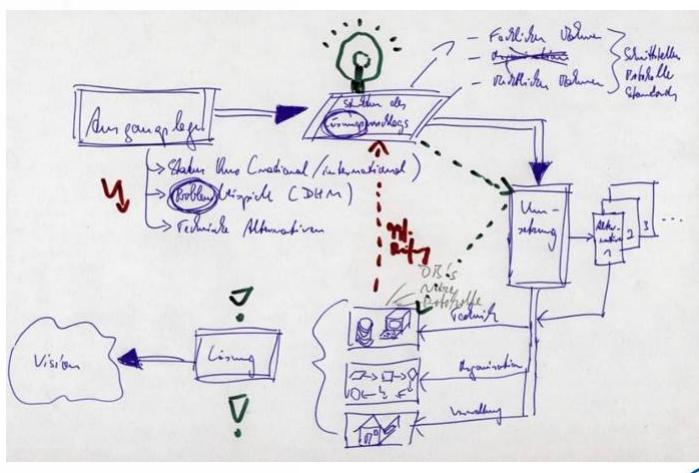 Ausgangslage
→ Status Quo (national/international)
→ Problem (DHM)
→ Technische Alternativen
des
Lösungsvorschlags
— Fachlicher Rahmen
— Rechtlicher Rahmen
Schnittstellen
Protokolle
Standards
Um-
setzung
Alter-
native
1
2
3
...
DB's
Netze
Protokolle
Technik
Organisation
Verwaltung
Lösung
Vision